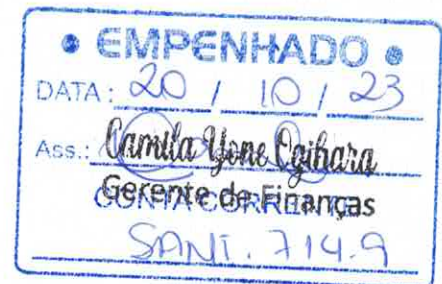 • EMPENHADO •
DATA: 20 / 10 / 23
Ass.: Camila Yone Ogihara
Gerente de Finanças
CONTA CORRENTE
SANT. 714.9